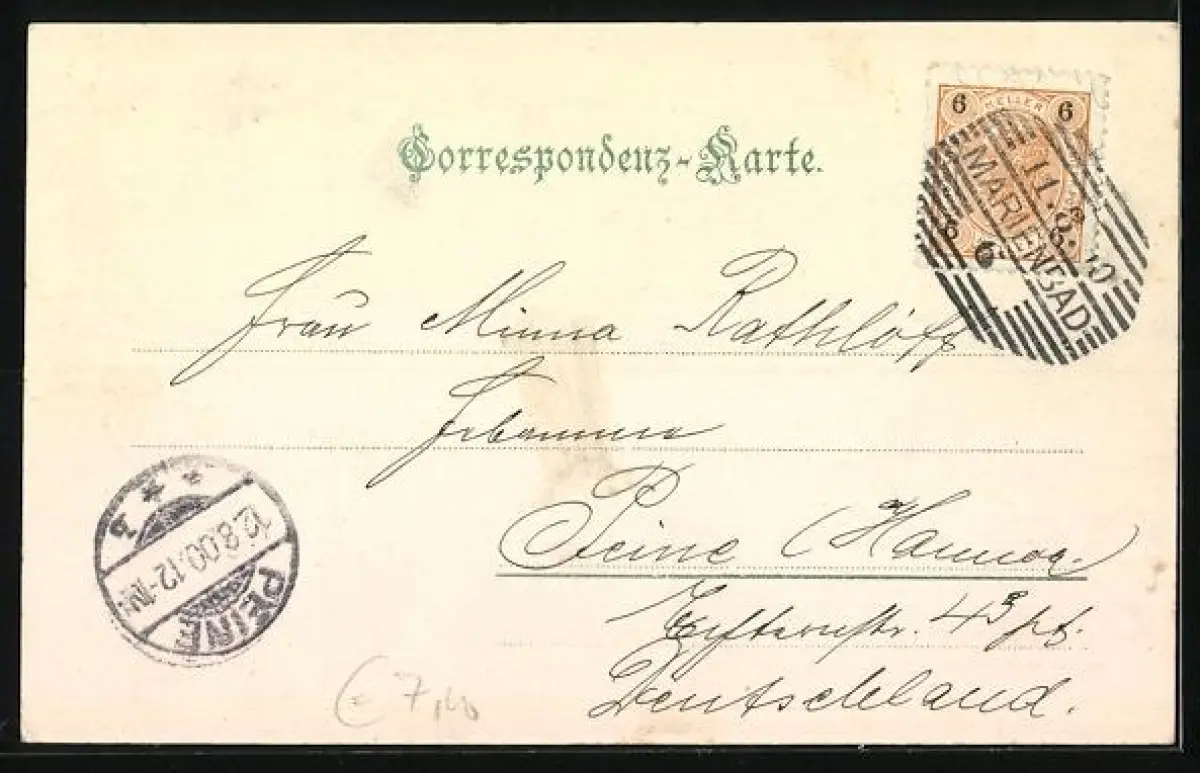 Correspondenz-Karte.
6 HELLER 6
6
11.8.00
MARIENBAD
Frau Minna Rathlöff
Peine (Hannov.)
43 pt.
Deutschland.
PEINE
12.8.00.12-1N.
€ 7,40